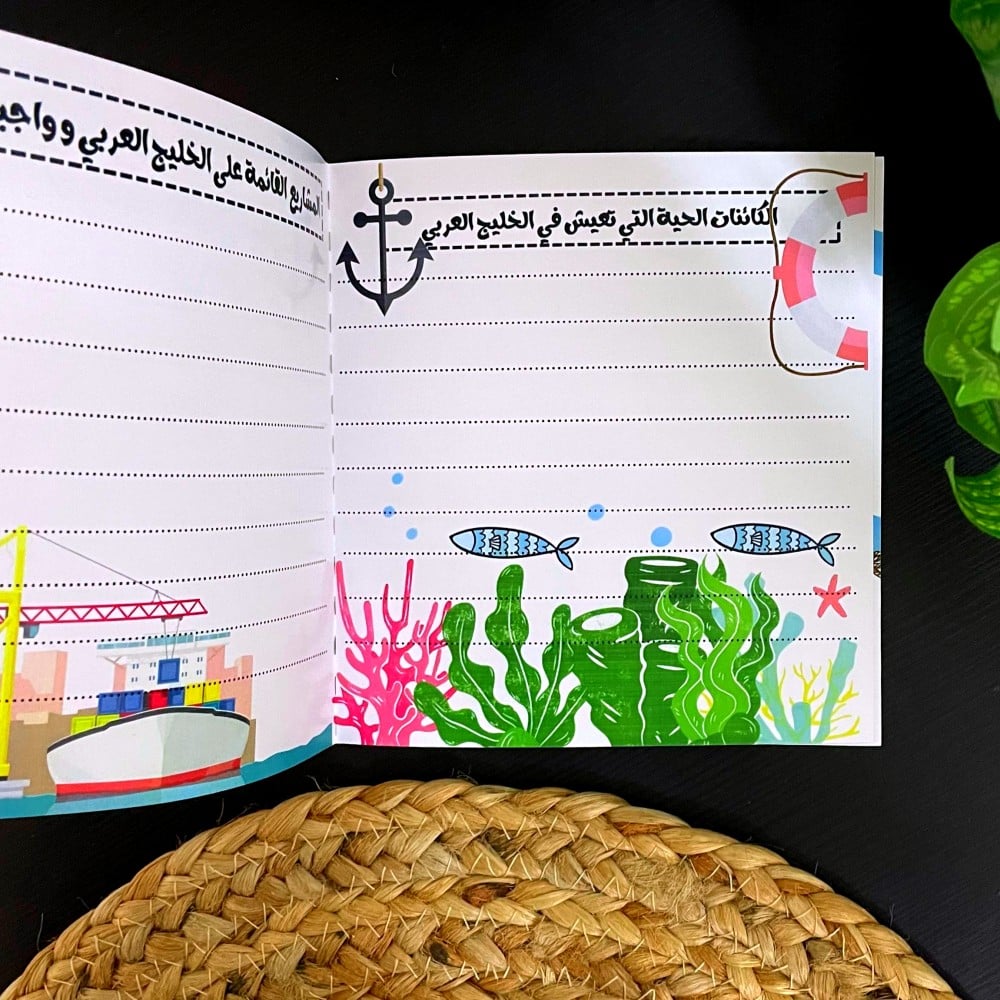 الكائنات الحية التي تعيش في الخليج العربي
المشاريع القائمة على الخليج العربي